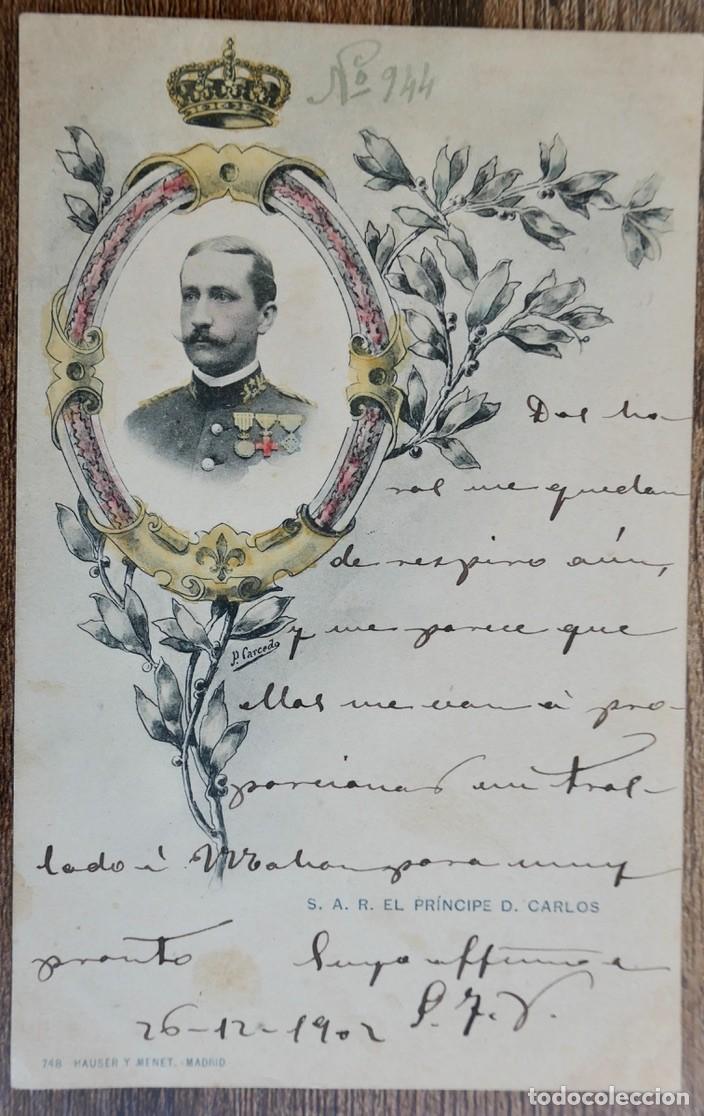 Nº 944
Dos ho-
ras me quedan
de respiro aún,
y me parece que
ellas me van á pro-
P. Carcedo
porcionar un tras-
lado á Mahon para muy
S. A. R. EL PRÍNCIPE D. CARLOS
pronto Suyo affmo a
26-12-1902
748 HAUSER Y MENET.-MADRID
todocoleccion